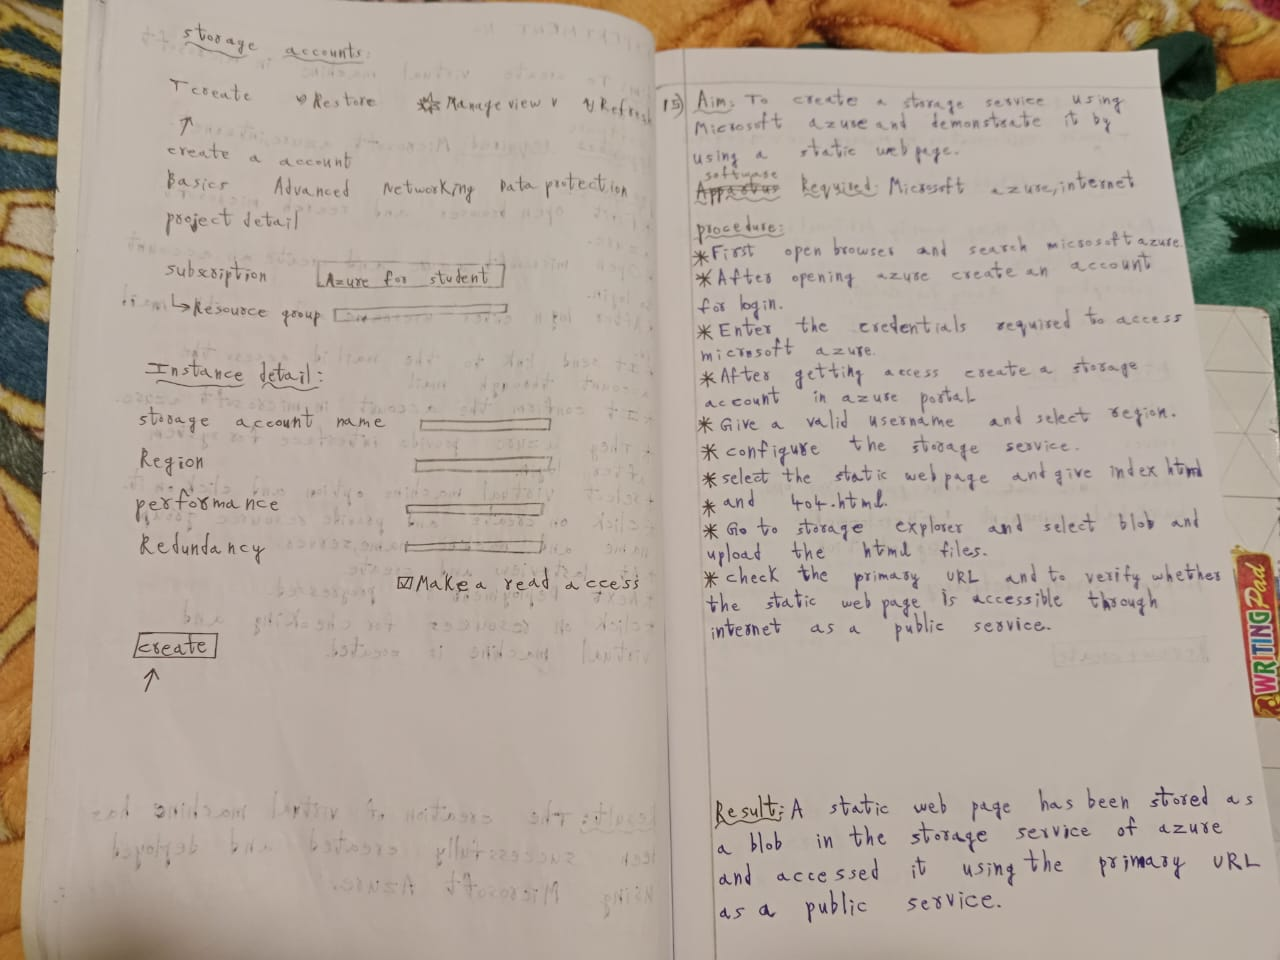 storage accounts:
+create ↺ Restore ⚙ Manage view ∨ ↻ Refresh
↑
create a account
Basics Advanced Networking Data protection
project detail
subscription Azure for student
↳ Resource group
Instance detail:
storage account name
Region
performance
Redundancy
☑ Make a read access
create
↑
15) Aim: To create a storage service using
Microsoft azure and demonstrate it by
using a static web page.
software
Appartus Required: Microsoft azure, internet
procedure:
* First open browser and search microsoft azure.
* After opening azure create an account
for login.
* Enter the credentials required to access
microsoft azure.
* After getting access create a storage
account in azure portal
* Give a valid username and select region.
* configure the storage service.
* select the static web page and give index html
* and 404.html.
* Go to storage explorer and select blob and
upload the html files.
* check the primary URL and to verify whether
the static web page is accessible through
internet as a public service.
Result: A static web page has been stored as
a blob in the storage service of azure
and accessed it using the primary URL
as a public service.
WRITING Pad